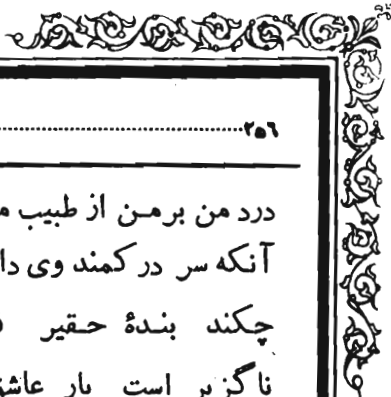 ۲۵۶
درد من بر من از طبیب
آنکه سر در کمند وی
چکند بندهٔ حقیر
ناگزیر است یار